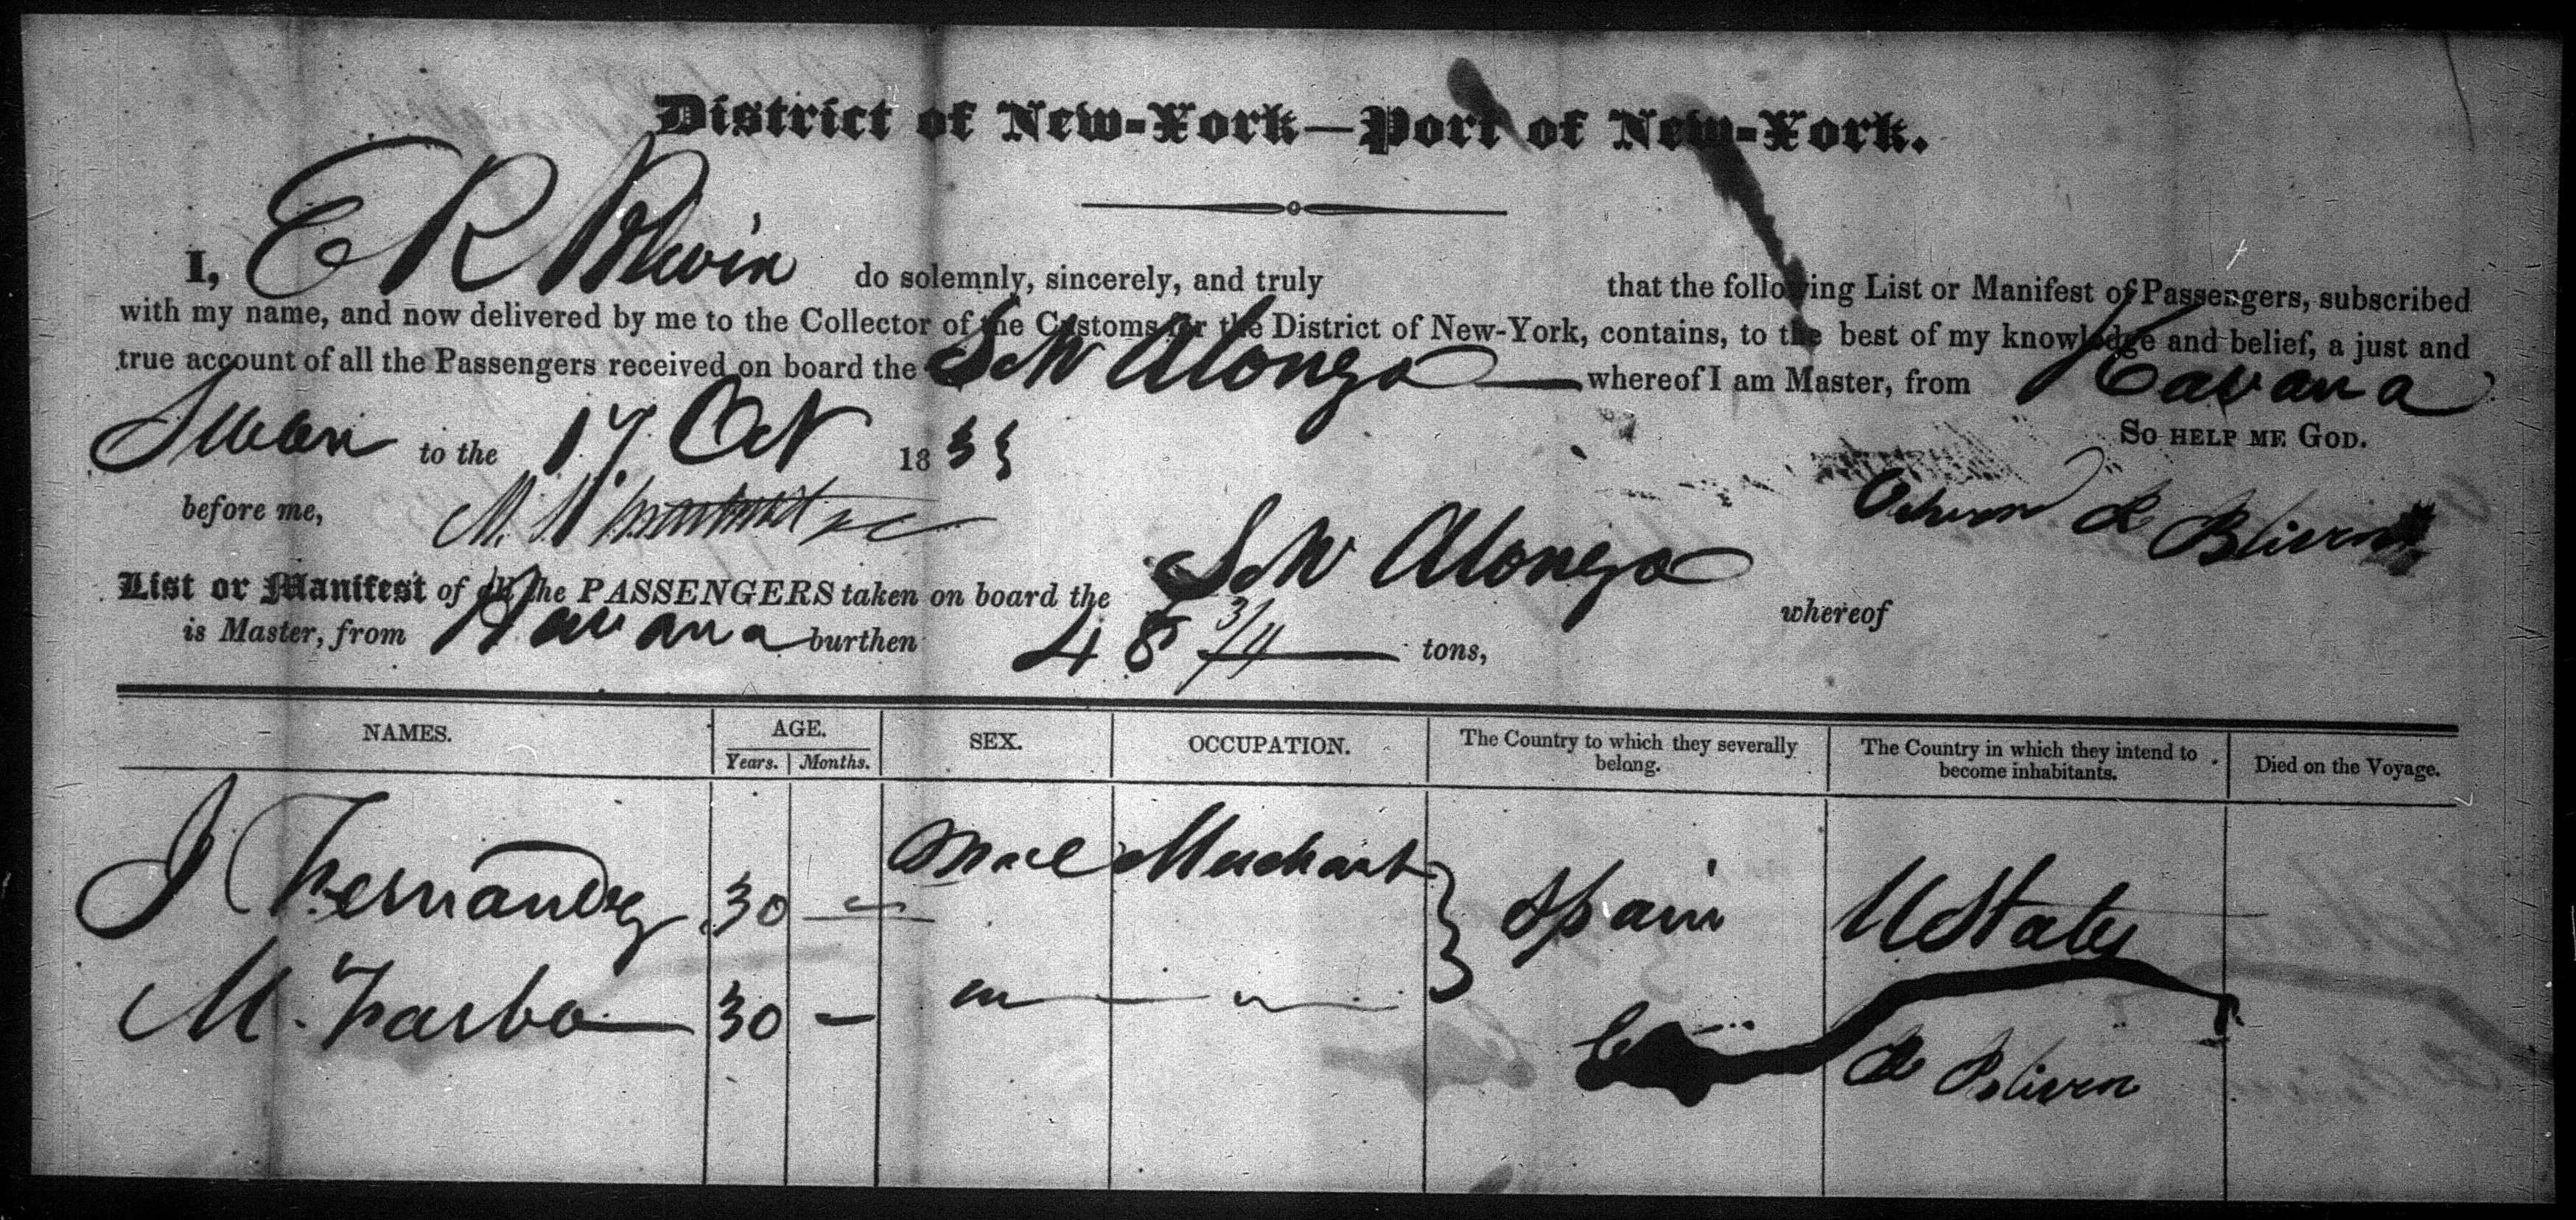 District of New-York—Port of New-York.
I, E R Blivin do solemnly, sincerely, and truly that the following List or Manifest of Passengers, subscribed
with my name, and now delivered by me to the Collector of the Customs for the District of New-York, contains, to the best of my knowledge and belief, a just and
true account of all the Passengers received on board the Schr Alonzo whereof I am Master, from Havana
So help me God.
Sworn to the 17 Oct 1833
before me,
R Bliven
List or Manifest of all the PASSENGERS taken on board the Schr Alonzo whereof
is Master, from Havana burthen 48 3/4 tons,
NAMES. AGE. SEX. OCCUPATION. The Country to which they severally belong. The Country in which they intend to become inhabitants. Died on the Voyage.
Years. Months.
J Fernandez 30 — Male Merchant } Spain U States
M. 30 —
R Bliven